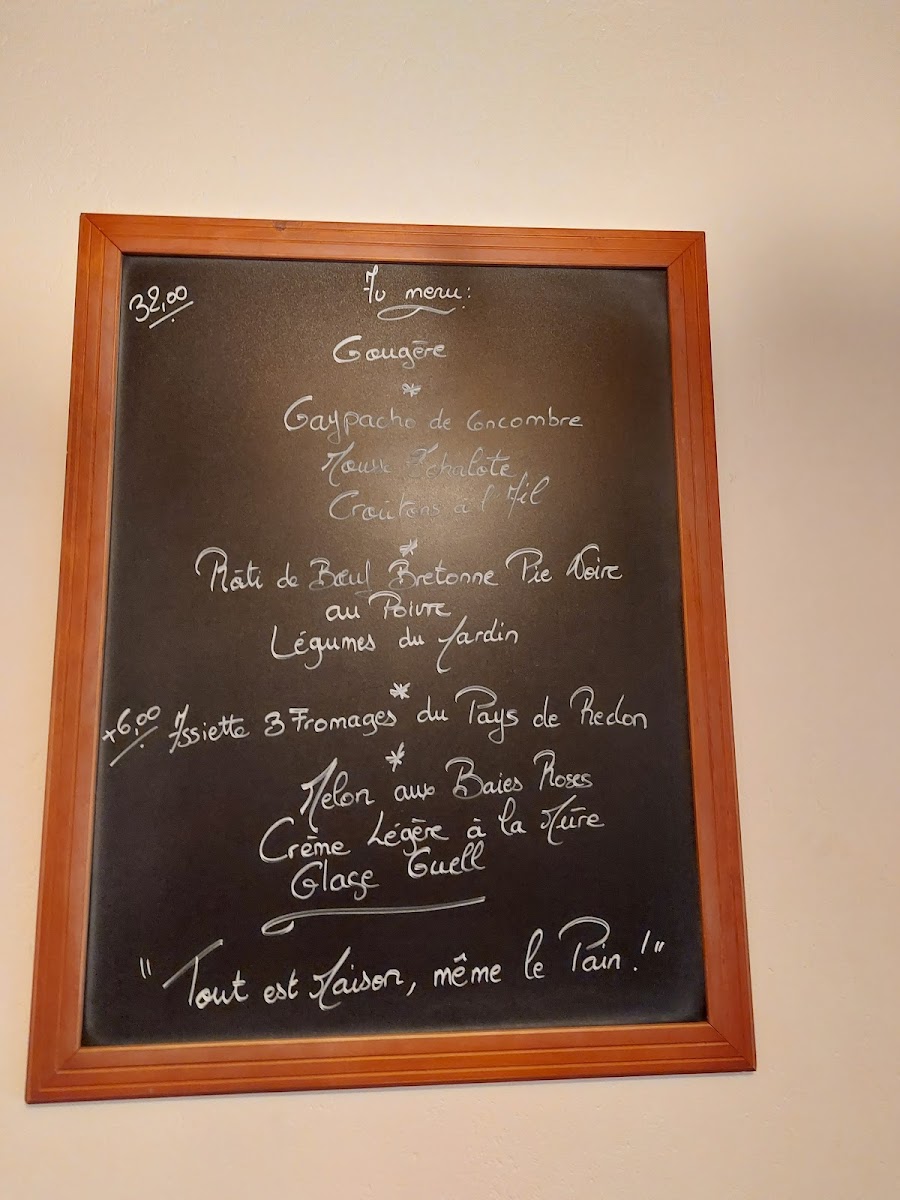 32,00
Au menu:
Gougère
*
Gaypacho de Concombre
Mousse Echalote
Croûtons à l'Ail
*
Rôti de Bœuf Bretonne Pie Noire
au Poivre
Légumes du Jardin
*
+6,00 Assiette 3 Fromages du Pays de Redon
*
Melon aux Baies Roses
Crème Légère à la Mûre
Glace
"Tout est Maison, même le Pain!"